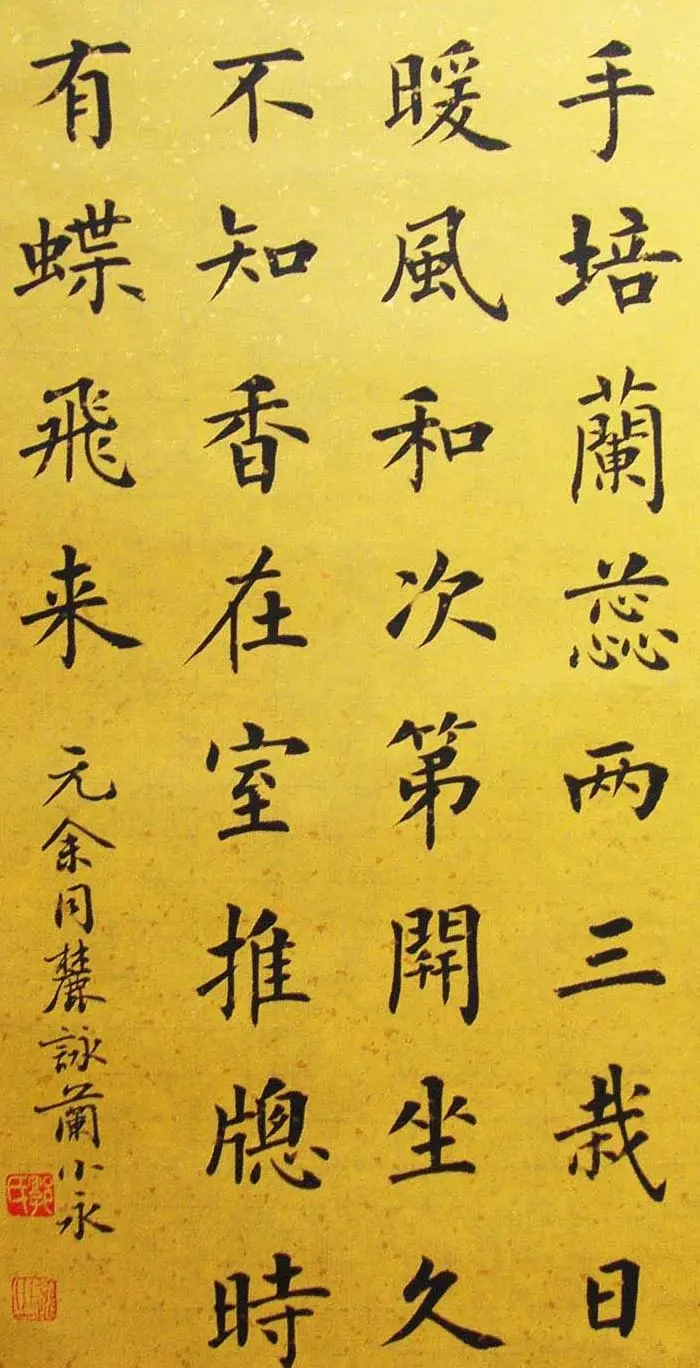 手培蘭蕊两三栽日
暖風和次第開坐久
不知香在室推牕時
有蝶飛来
元余同麓詠蘭小永